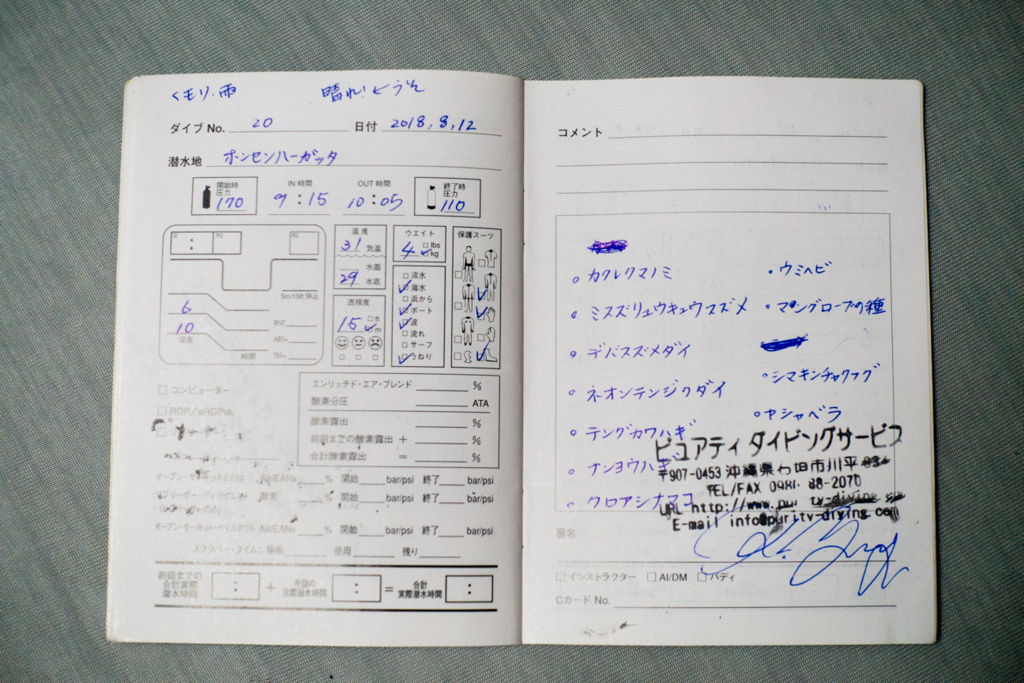 くモリ・雨 晴れ!←うそ
ダイブ No. 20 日付 2018, 8, 12
潜水地 ホンセンハーガッタ
開始時圧力 170 IN 時間 9:15 OUT 時間 10:05 終了時圧力 110
温度 ウエイト 保護スーツ
31 気温 4 lbs kg
水面
29 水底
淡水
海水
浜から
5m/15ft 停止
透視度 ボート
6 15 ft m 波
10 流れ
深度 サーフ
時間 うねり
コンピューター
エンリッチド・エア・ブレンド %
酸素分圧 ATA
RDP/eRDPML
酸素露出 %
前回までの酸素露出 + %
合計酸素露出 = %
% 開始 bar/psi 終了 bar/psi
% 開始 bar/psi 終了 bar/psi
% 開始 bar/psi 終了 bar/psi
使用 残り
前回までの合計実際潜水時間 : + 今回の実際潜水時間 : = 合計実際潜水時間 :
コメント
カクレクマノミ
ミスズリュウキュウスズメ
デバスズメダイ
ネオンテンジクダイ
テングカワハギ
ナンヨウハギ
クロアシナマコ
・ウミヘビ
・マングローブの種
・シマキンチャクフグ
・ヤシャベラ
ピュアティ ダイビングサービス
〒907-0453 沖縄県石垣市川平
TEL/FAX 0981-88-2070
URL http://www.purity-diving.com
E-mail info@purity-diving.com
署名
インストラクター AI/DM バディ
Cカード No.